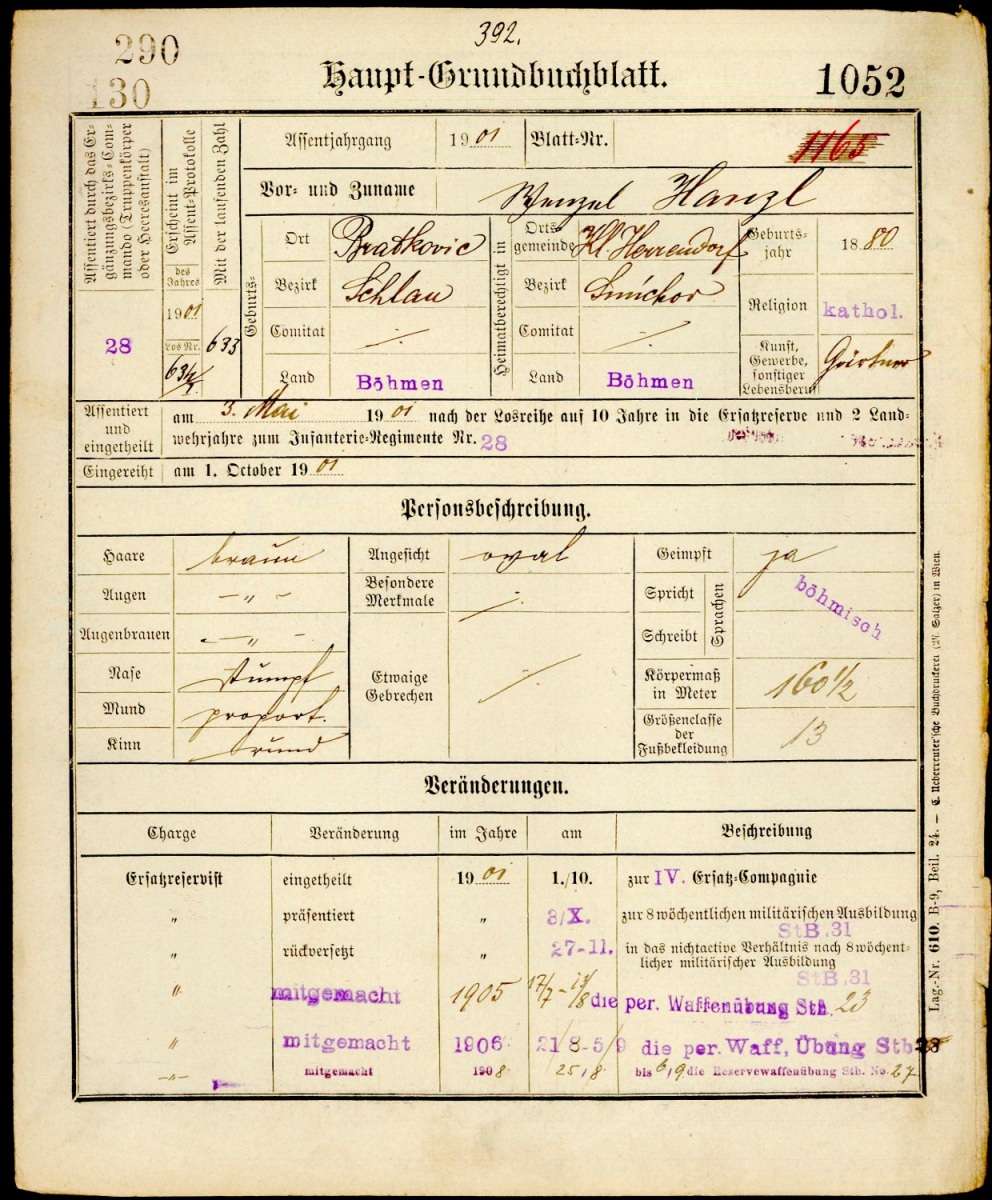 392.
290
130
Haupt-Grundbuchblatt.
1052
Assentiert durch das Ergänzungsbezirks-Commando (Truppenkörper oder Heeresanstalt)
28
Erscheint im Assent-Protokolle
des Jahres
1901
Los Nr.
Mit der laufenden Zahl
633
Assentjahrgang 1901 Blatt-Nr. 1165
Vor- und Zuname Wenzel Hanzl
Geburts-
Ort Bratkovic
Bezirk Schlan
Comitat ./.
Land Böhmen
Heimatberechtigt in
Ortsgemeinde Kl Herrendorf
Bezirk Smichov
Comitat ./.
Land Böhmen
Geburtsjahr 1880
Religion kathol.
Kunst, Gewerbe, sonstiger Lebensberuf Gärtner
Assentiert und eingetheilt
am 3. Mai 1901 nach der Losreihe auf 10 Jahre in die Ersatzreserve und 2 Land-
wehrjahre zum Infanterie-Regimente Nr. 28
Eingereiht am 1. October 1901
Personsbeschreibung.
Haare braun
Augen -„-
Augenbrauen -„-
Nase stumpf
Mund proport.
Kinn rund
Angesicht oval
Besondere Merkmale ./.
Etwaige Gebrechen ./.
Geimpft ja
Spricht
Schreibt
Sprachen
böhmisch
Körpermaß in Meter 160 1/2
Größenclasse der Fußbekleidung 13
Veränderungen.
Charge Veränderung im Jahre am Beschreibung
Ersatzreservist eingetheilt 1901 1./10. zur IV. Ersatz-Compagnie
„ präsentiert „ 3/X. zur 8 wöchentlichen militärischen Ausbildung
StB.31
„ rückversetzt „ 27-11. in das nichtactive Verhältnis nach 8 wöchent-
licher militärischer Ausbildung
StB.31
„ mitgemacht 1905 17/7 - 13/8 die per. Waffenübung Stb. 23
„ mitgemacht 1906 21/8-5/9 die per. Waff, Übung Stb 28
-„- mitgemacht 1908 25/8 bis 6/9 die Reservewaffenübung Stb. No. 27
Lag.-Nr. 610. B-9, Beil. 24. — C. Ueberreuter'sche Buchdruckerei (M. Salzer) in Wien.